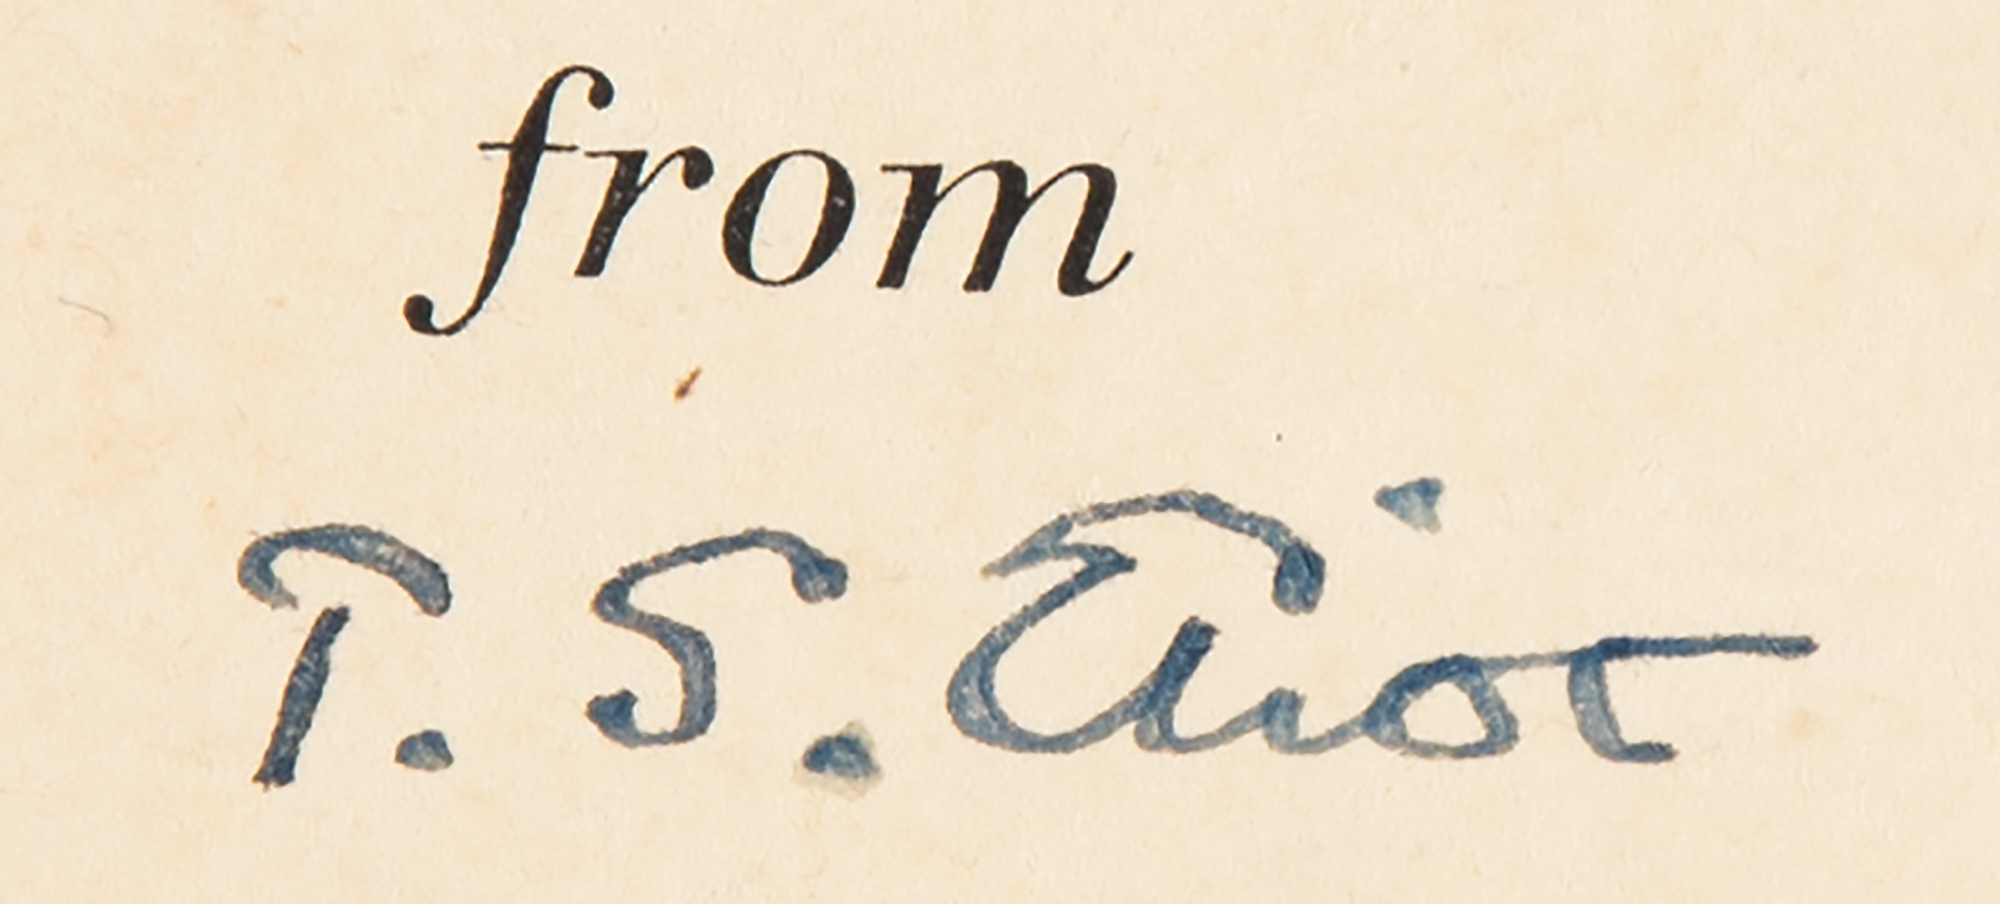 from
T. S. Eliot